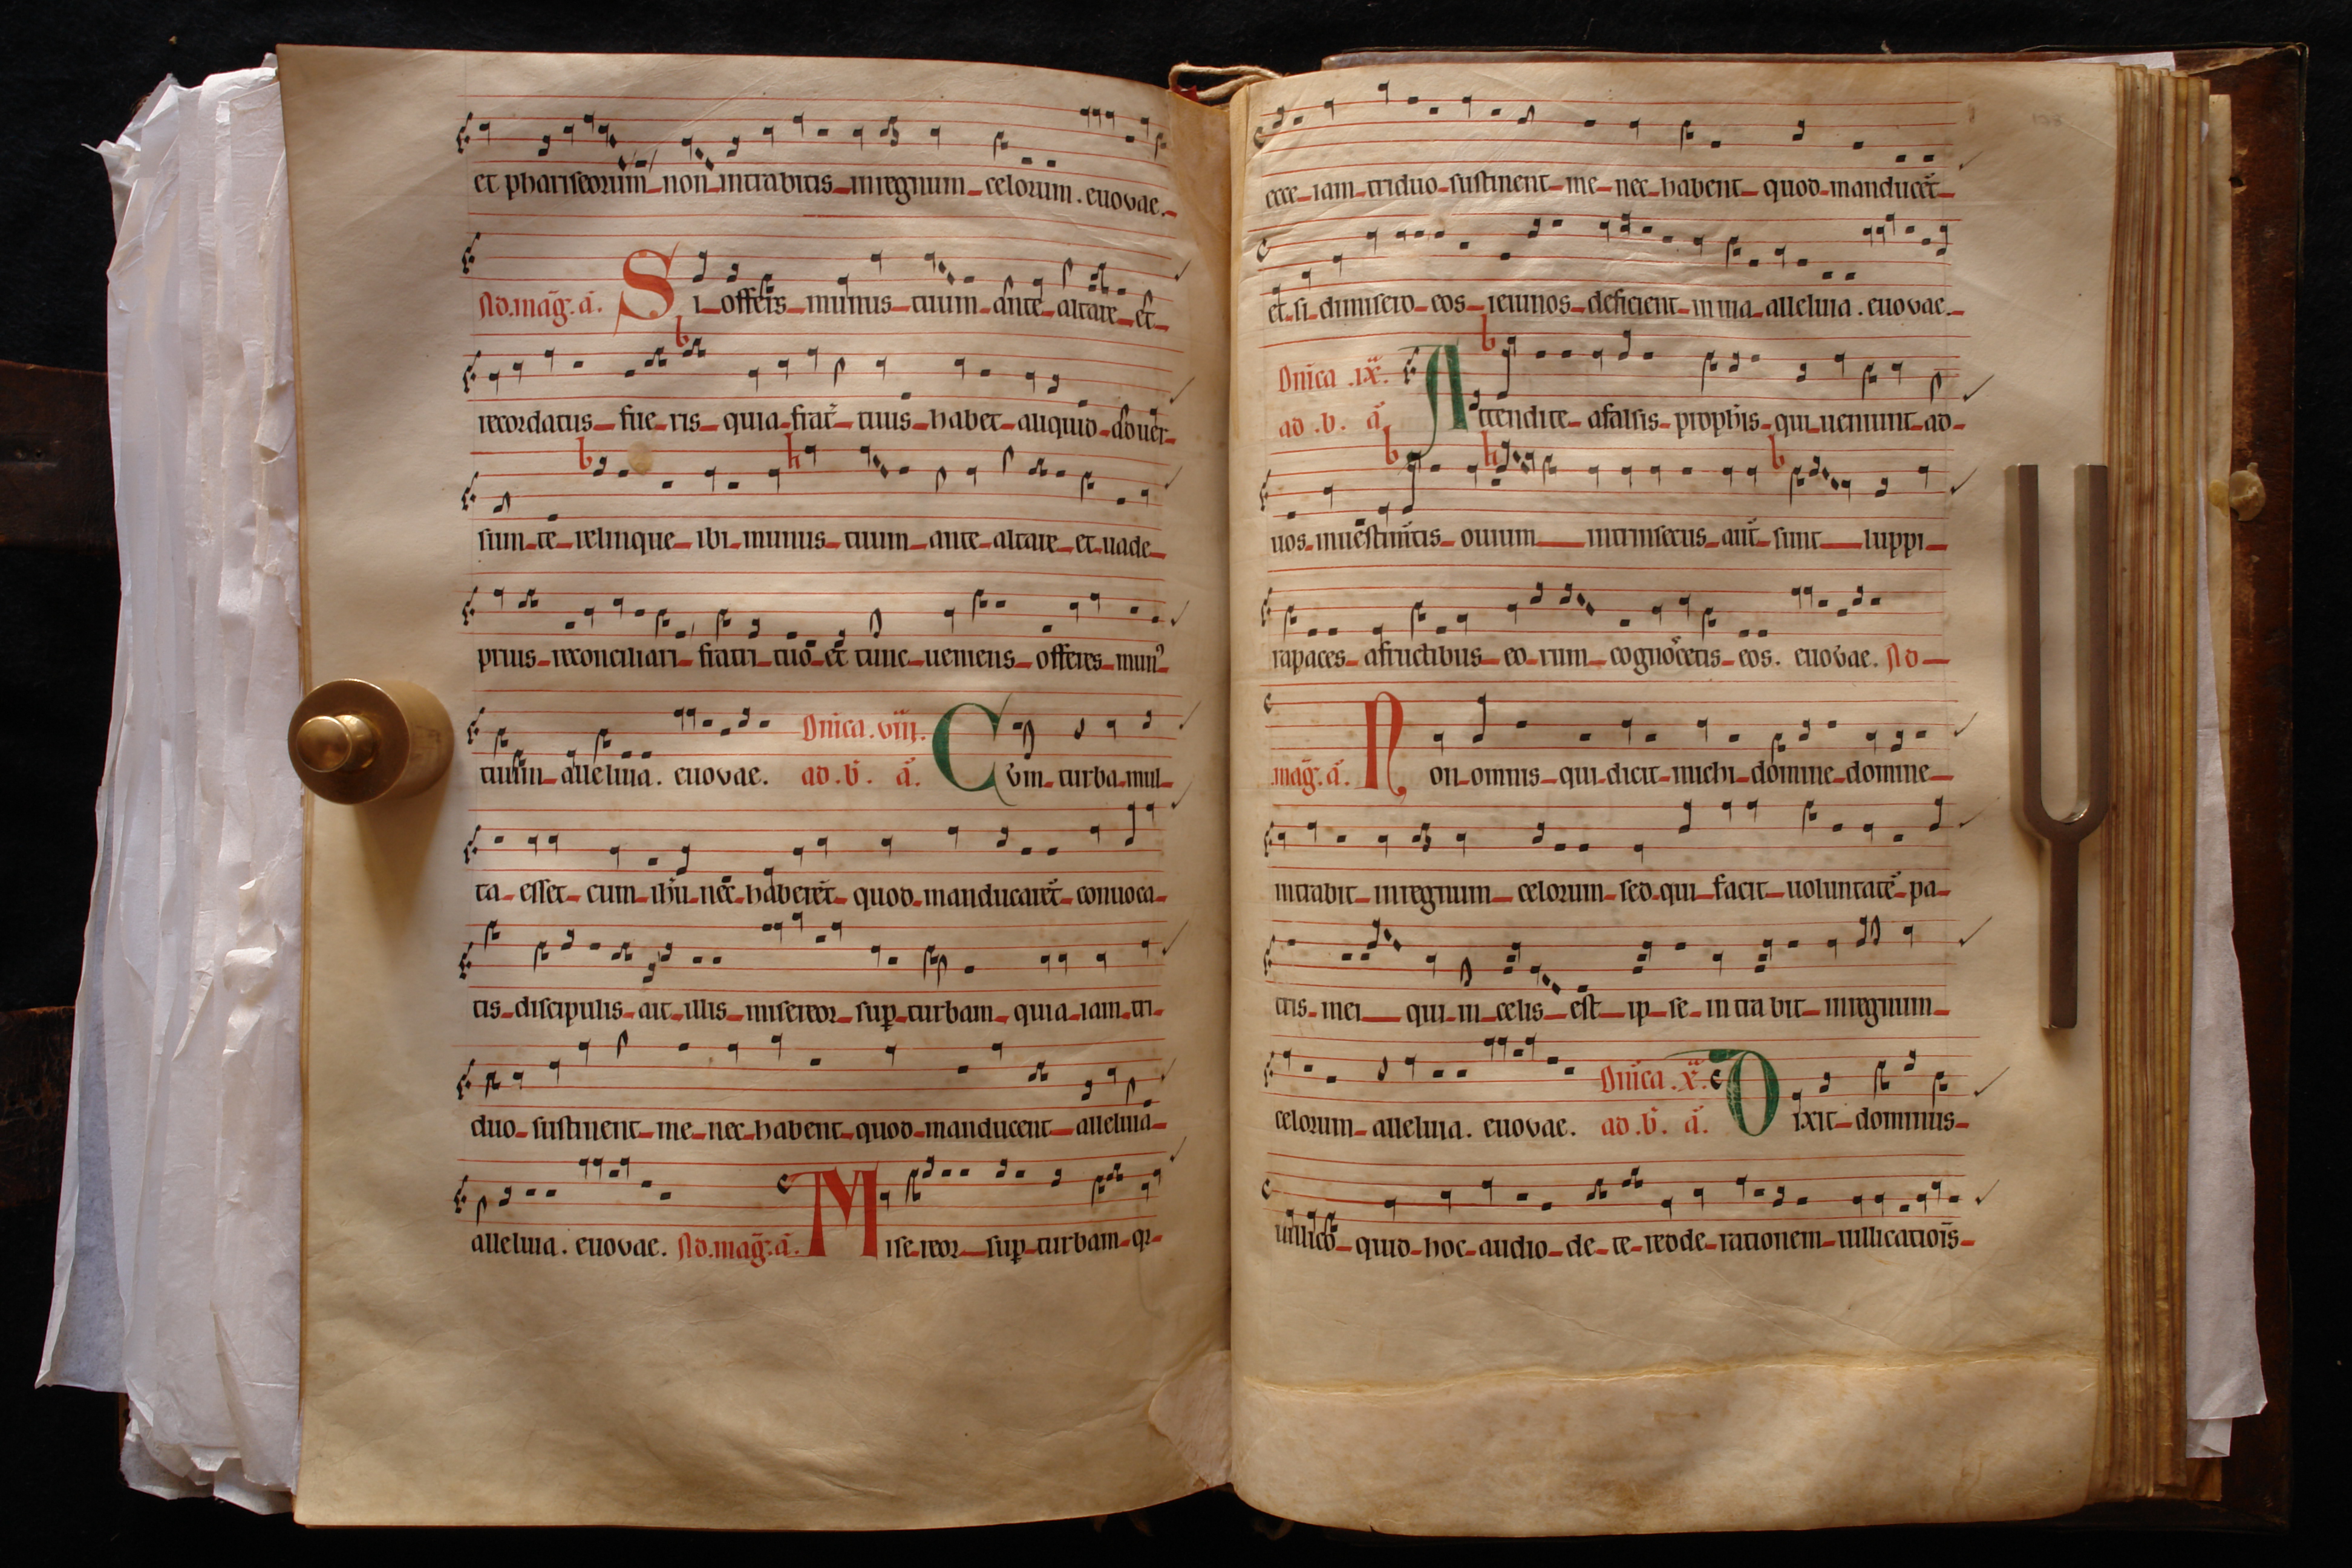 et phariseorum non intrabitis inregnum celorum. euovae.
Ad. mag̃. ã. SI offeris munus tuum ante altare et
recordatus fueris quia frat̃ tuus habet aliquid aduer
sum te relinque ibi munus tuum ante altare et uade
prius reconciliari fratri tuo et tunc ueniens offeres mun᾽
tuum alleluia. euovae. Dnĩca .viij. ad .b̃. ã. Cũm turba mul
ta esset cum ihũ nec haberẽt quod manducarẽt conuoca
tis discipulis ait illis misereor sup̱ turbam quia iam tri
duo sustinent me nec habent quod manducent alleluia
alleluia. euovae. Ad. mag̃. ã. Misereor sup̱ turbam qr
ecce iam triduo sustinent me nec habent quod manducẽt
et si dimisero eos ieiunos deficient in uia alleluia. euovae.
Dnĩca .ix. ad .b. ã. Attendite afalsis prophĩs qui ueniunt ad
uos inuestim̃tis ouium intrinsecus aut̃ sunt luppi
rapaces afructibus eorum cognos̃cetis eos. euovae. Ad
mag̃. ã. Non omnis qui dicit michi domine domine
intrabit inregnum celorum sed qui facit uoluntatẽ pa
tris mei qui in celis est ipse intrabit inregnum
celorum alleluia. euovae. Dnĩca .x. ad .b̃. ã. Dixit dominus
uillico quid hoc audio de te redde rationem uillicatiõis